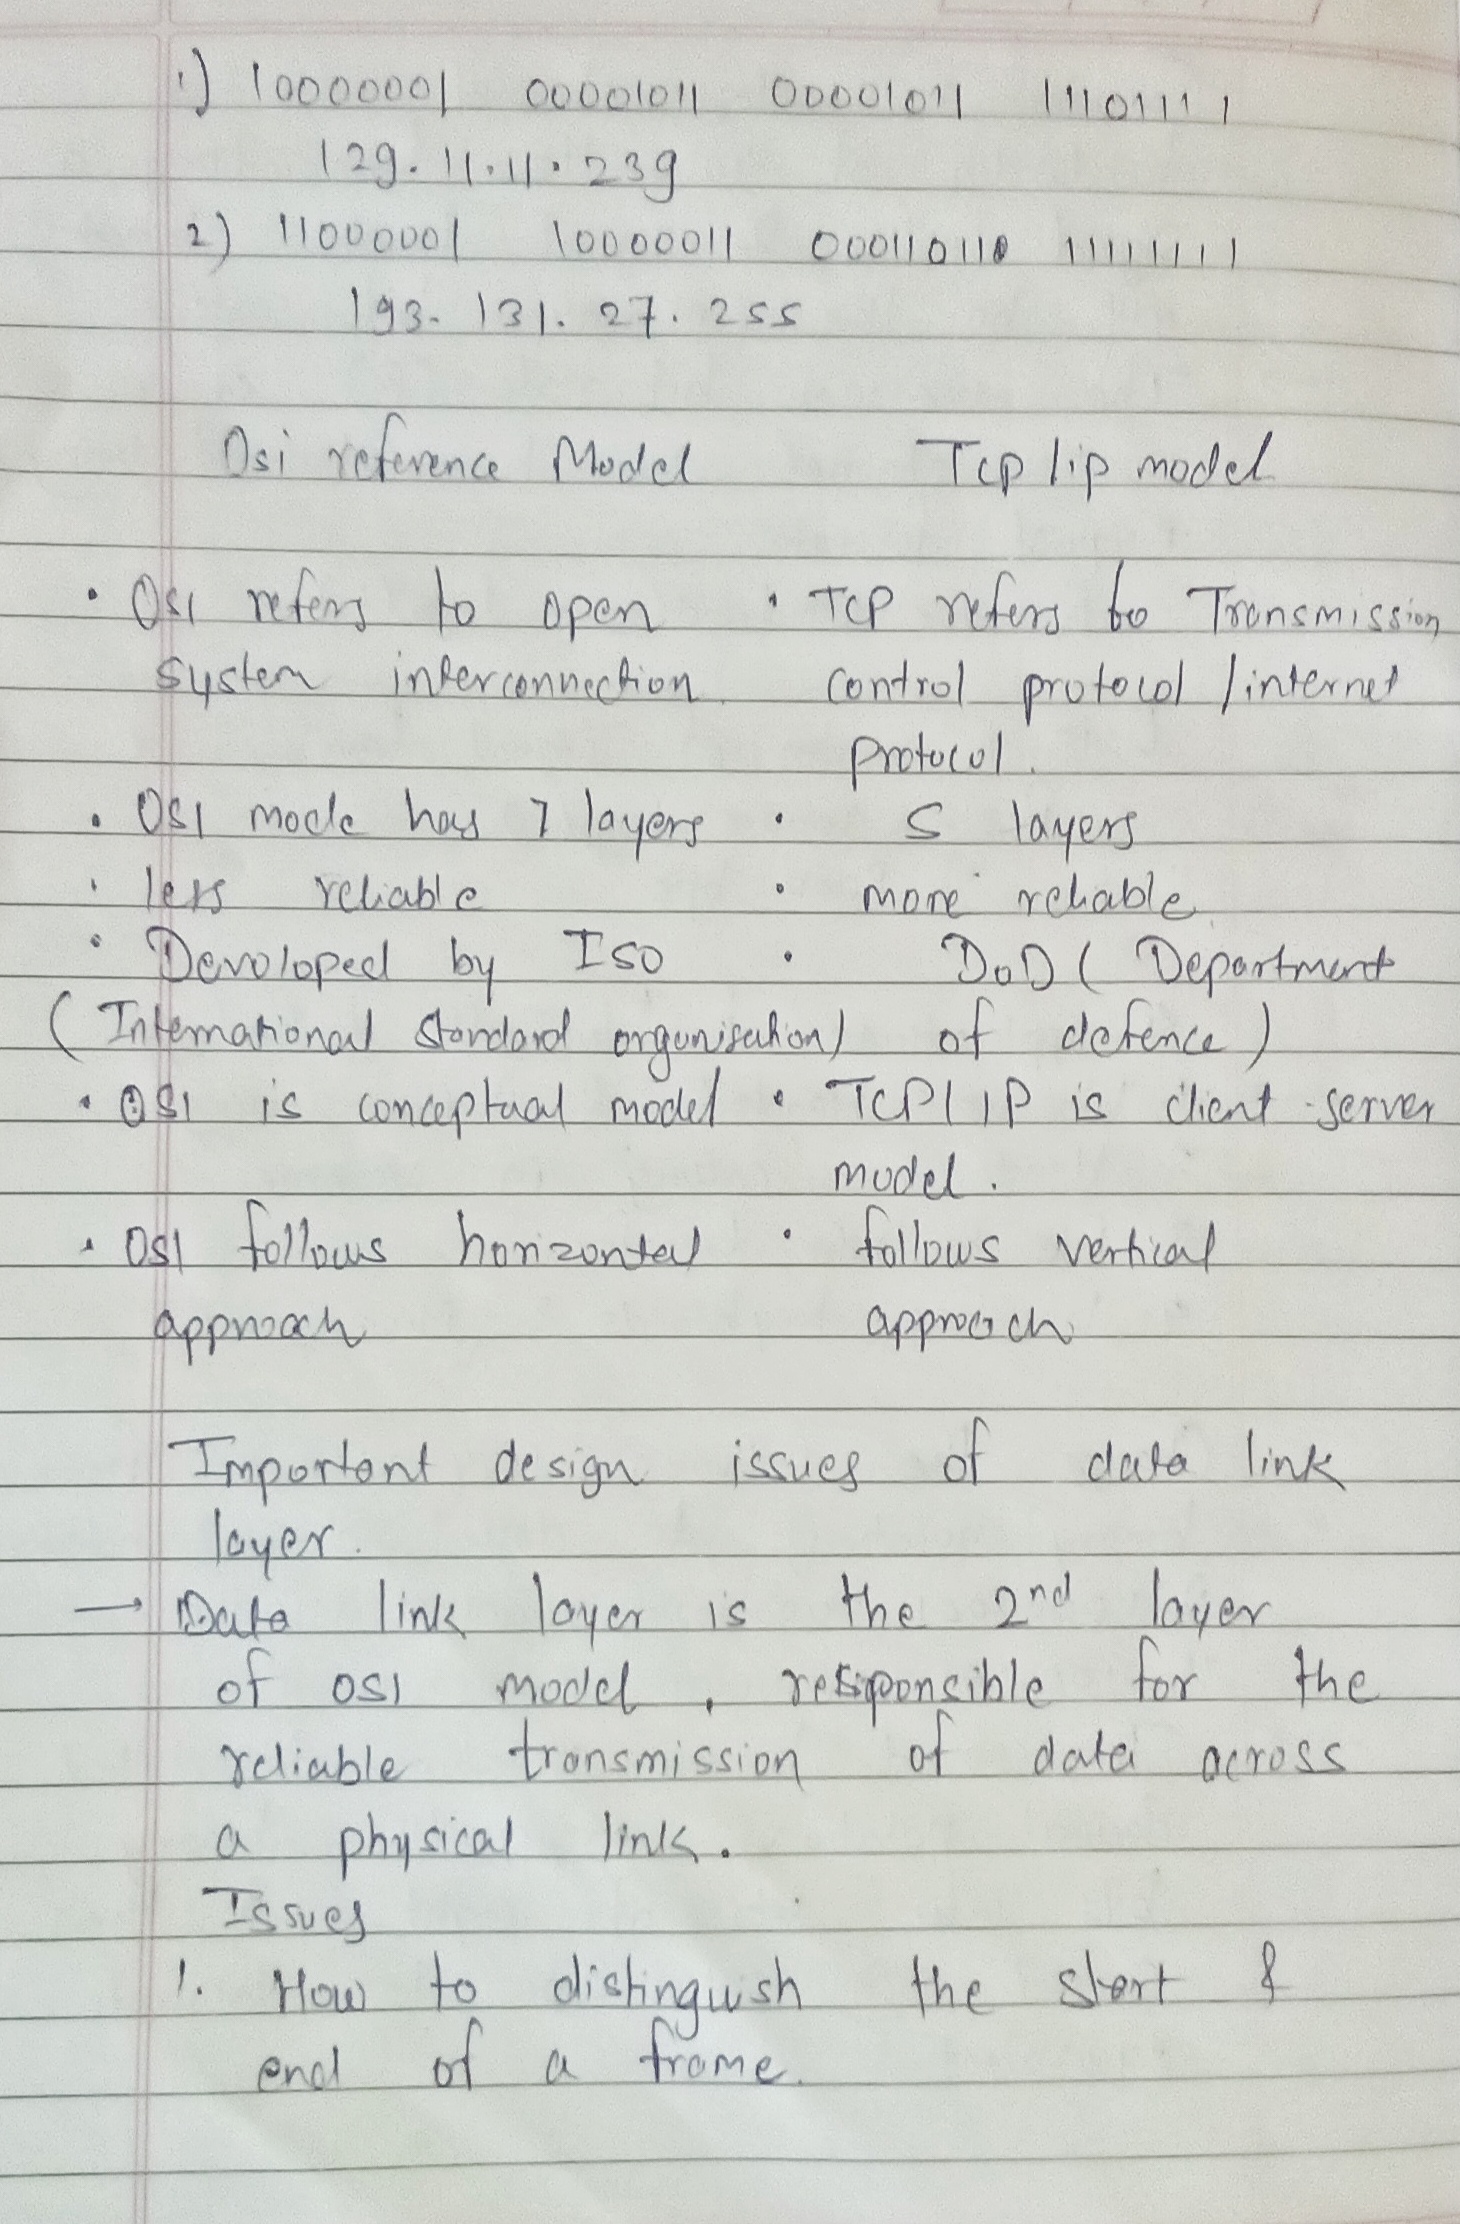 1) 10000001 00001011 00001011 11101111
129.11.11.239
2) 11000001 10000011 000110110 11111111
193.131.27.255
Osi reference Model Tcp/ip model
• OSI refers to open • TCP refers to Transmission
system interconnection. control protocol/internet
protocol.
• OSI mode has 7 layers • 5 layers
• less reliable • more reliable
• Devoloped by ISO • DoD (Department
(International Standard organisation) of defence)
• OSI is conceptual model • TCP/IP is client-server
model.
• OSI follows horizontal • follows vertical
approach approach
Important design issues of data link
layer.
→ Data link layer is the 2nd layer
of OSI model, responsible for the
reliable transmission of data across
a physical link.
Issues
1. How to distinguish the start &
end of a frame.